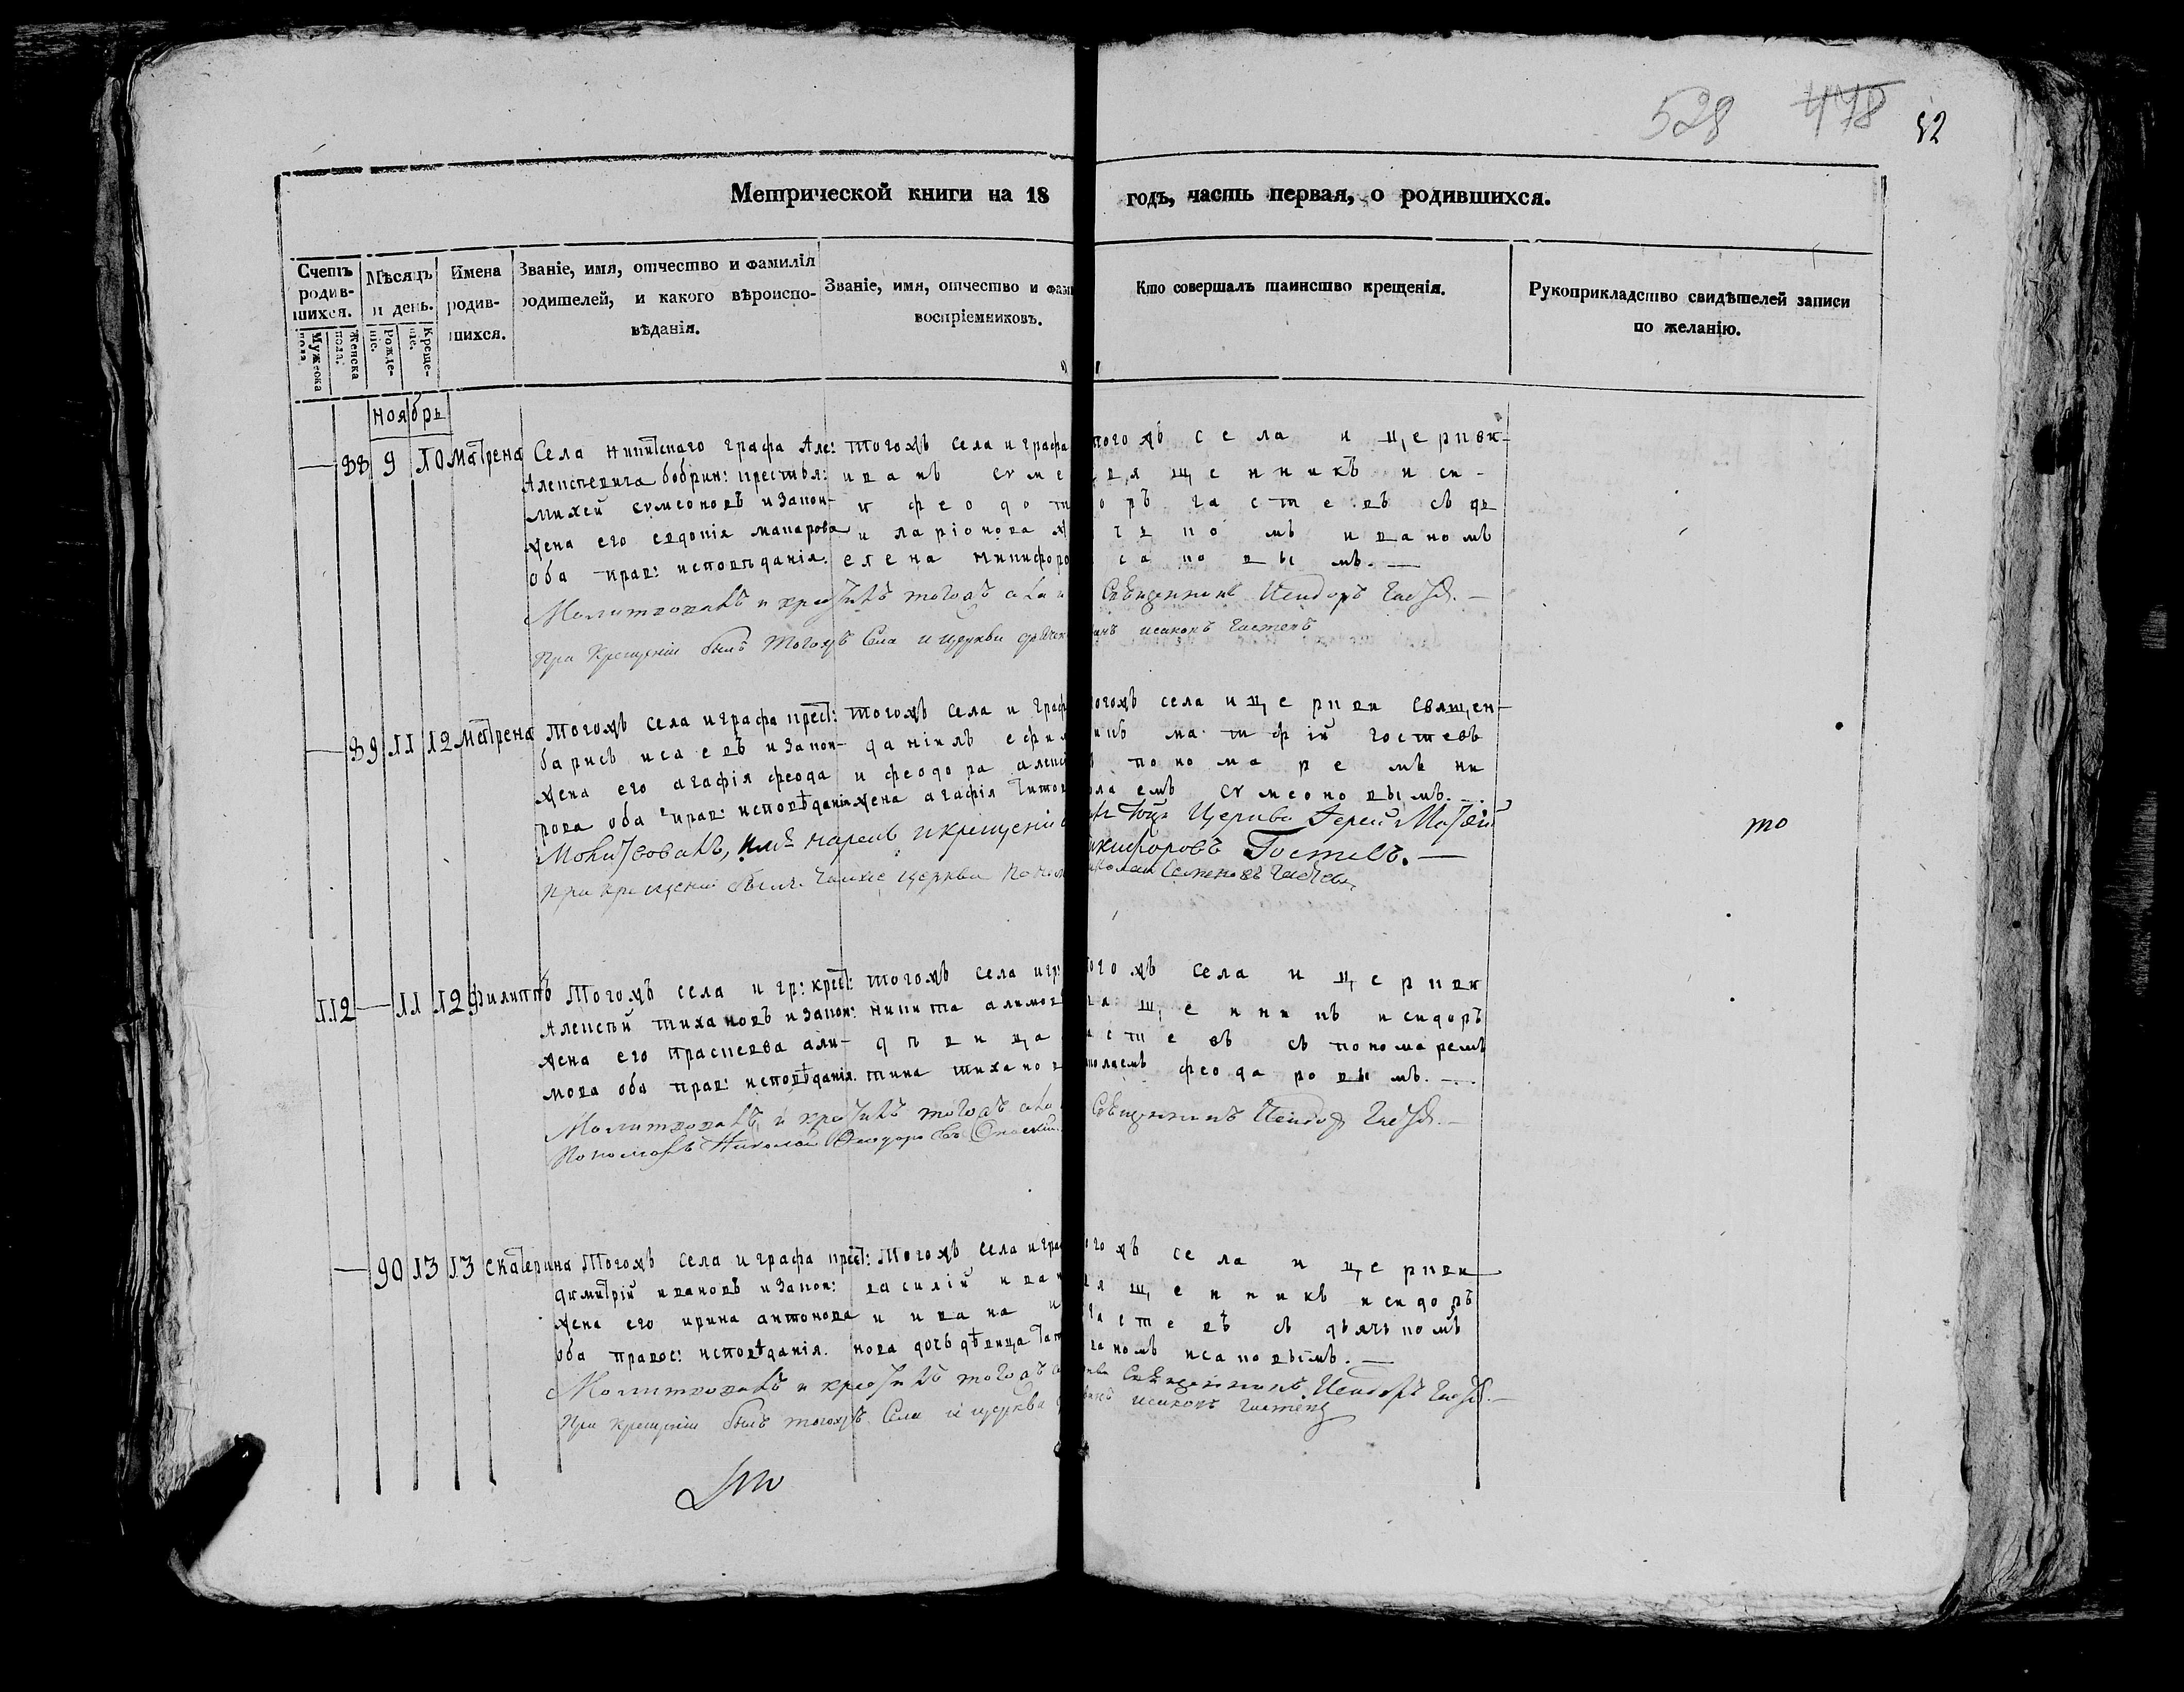 528 478 52
Метрической книги на 18 годъ, часть первая, о родившихся.
Счетъ родив-шихся.
Мужеска пола.
Женска пола.
Мѣсяцъ и день.
Рожде-ніе.
Креще-ніе.
Имена родив-шихся.
Званіе, имя, отчество и фамилія
родителей, и какого вѣроиспо-
вѣданія.
Званіе, имя, отчество и фам
воспріемниковъ.
Кто совершалъ таинство крещенія.
Рукоприкладство свидѣтелей записи
по желанію.
ноябрь
— 88 9 10 Матрена
Села никитскаго графа Але:
Алексѣевича бобрин: крестья:
михей сѵмеоновъ и закон-
жена его евдокія макарова
оба прав: исповѣданія.
тогожъ села и графа
иванъ сѵме
и феодот
иларіонова ж
елена никифоро
тогожъ села и церкви
щенникъ иси-
оръ гастевъ съ дь
чкомъ иваномъ
саковымъ. —
Молитвовалъ и крестилъ тогожъ села и Священникъ Исидоръ Гастев. —
При крещеніи былъ тогожъ Села и церкви дьячек исаковъ Гастевъ
— 89 11 12 Матрена
Тогожъ села и графа крест:
барисъ исаевъ и закон-
жена его агафія феодо
рова оба прав: исповѣданія
тогожъ села и граф
даніилъ ефи
и феодора алекс
жена агафія тито
тогожъ села и церкви священ-
никъ матфій гостевъ
пономаремъ ни
колаемъ сѵмеоновымъ.
Молитвовалъ, имя нарекъ и крещеніе Церкви Іерей Матфій
Никифоровъ Гостевъ. —
При крещеніи былъ тоихже церкви поном Николай Семеновъ Гастевъ
то
112 — 11 12 Филиппъ
Тогожъ села и гр: крест:
Алексѣй тихановъ и закон:
жена его праскева али-
мова оба прав: исповѣданія.
тогожъ села и гр:
никита алимов
дѣвица
тина тиханов
тогожъ села и церкви
щенникъ исидоръ
астевъ съ пономаремъ
николаемъ феодаровымъ. —
Молитвовалъ и крестилъ тогожъ села Священникъ Исидор Гастев. —
Пономарь Николай Феодоровъ Спаскій
— 90 13 13 екатерина
Тогожъ села и графа крест:
димитрій ивановъ и закон:
жена его ирина антонова
оба правос: исповѣданія.
Тогожъ села и граф
василій иван
и ивана и
нова дочь дѣвица тат
тогожъ села и церкви
щенникъ исидоръ
гастевъ съ дьячкомъ
иваномъ исаковымъ. —
Молитвовалъ и крестилъ тогожъ церкви Священникъ Исидоръ Гастев. —
При крещеніи былъ тогожъ Села и церкви исаковъ Гастевъ